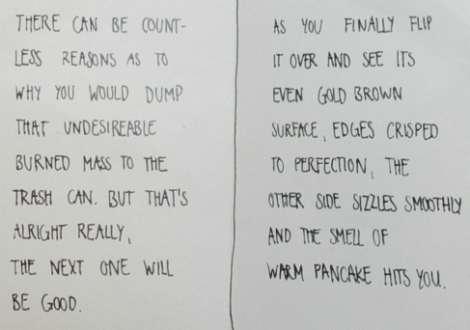 THERE CAN BE COUNT-
LESS REASONS AS TO
WHY YOU WOULD DUMP
THAT UNDESIREABLE
BURNED MASS TO THE
TRASH CAN. BUT THAT'S
ALRIGHT REALLY,
THE NEXT ONE WILL
BE GOOD.
AS YOU FINALLY FLIP
IT OVER AND SEE ITS
EVEN GOLD BROWN
SURFACE, EDGES CRISPED
TO PERFECTION, THE
OTHER SIDE SIZZLES SMOOTHLY
AND THE SMELL OF
WARM PANCAKE HITS YOU.